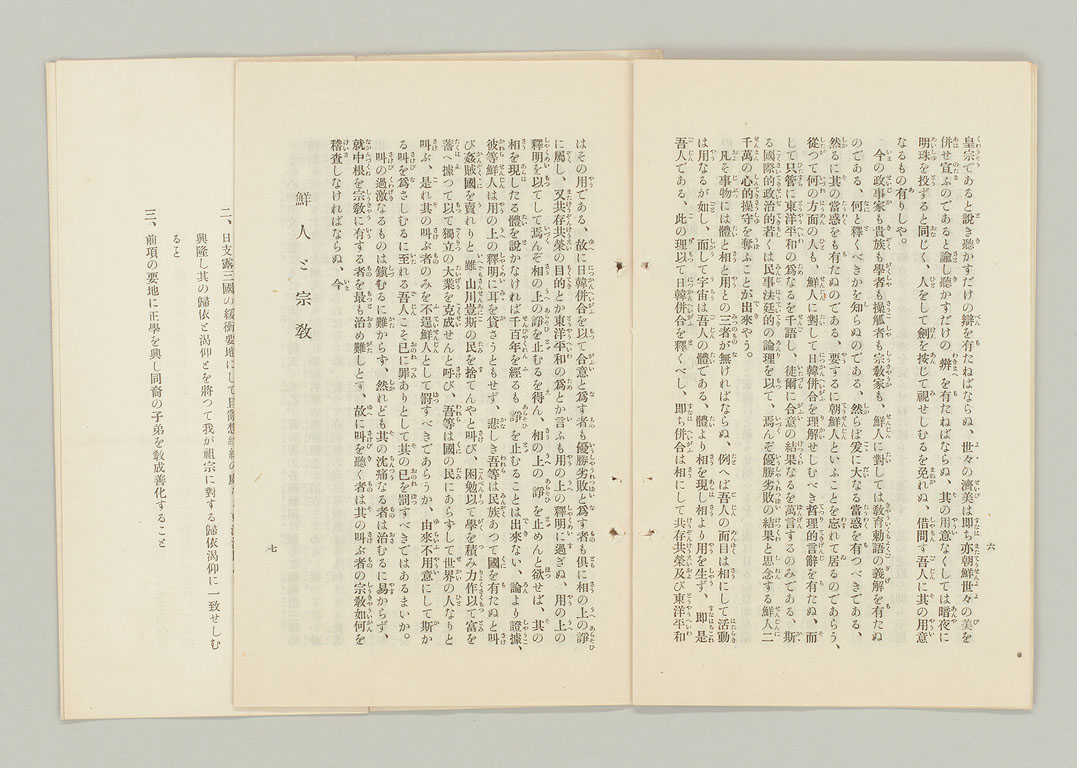 皇宗であると説き聽かすだけの辯を有たねばならぬ、世々の濟美は即ち亦朝鮮世々の美を
併せ宣ふのであると諭し聽かすだけの辨を有たねばならぬ、其の用意なくしては暗夜に
明珠を投ずると同じく、人をして劍を按じて視せしむるを免れぬ、借問す吾人に其の用意
なるもの有りしや。
今の政事家も貴族も學者も操觚者も宗敎家も、鮮人に對しては敎育勅語の義解を有たぬ
のである、何と釋くべきかを知らぬのである、然らば爰に大なる當惑を有つべきである、
然るに其の當惑をも有たぬのである、要するに朝鮮人といふことを忘れて居るのであらう、
從つて何の方面の人も、鮮人に對して日韓併合を理解せしむべき哲理的言辭を有たぬ、而
して只管に東洋平和の爲なるを千語し、徒爾に合意の結果なるを萬言するのみである、斯
る國際的政治的若くは民事法廷的の論理を以て、焉んぞ優勝劣敗の結果と思念する鮮人二
千萬の心的操守を奪ふことが出來やう。
凡そ事物には體と相と用との三者が無ければならぬ、例へば吾人の面目は相にして活動
は用なるが如し、而して宇宙は吾人の體である、體より相を現し相より用を生ず、即ち是
吾人である、此の理以て日韓併合を釋くべし、即ち併合は相にして共存共榮及び東洋平和
六
はその用である、故に日韓併合を以て合意と爲す者も優勝劣敗と爲す者も俱に相の上の諍
に屬し、又共存共榮の目的とか東洋平和の爲とか言ふも用の上の釋明に過ぎぬ、用の上の
釋明を以てして焉んぞ相の上の諍を止むるを得ん、相の上の諍を止めんと欲せば、其の
相を現したる體を說かなければ千百年を經るも諍を止むることは出來ない、論より證據、
彼等鮮人は用の上の釋明に耳を貸さうともせず、悲しき吾等は民族あつて國を有たぬと叫
び姦賊國を賣れりと雖山川豈斯の民を捨てんやと叫び、困勉以て學を積み力作以て富を
蓄へ據つて以て獨立の大業を克成せんと呼び、吾等は國の民にあらずして世界の人なりと
叫ぶ、是れ其の叫ぶ者のみを不逞鮮人として罰すべきであらうか、由來不用意にして斯か
る叫を爲さしむるに至れる吾人こそ已に罪ありとして其の己を罰すべきではあるまいか。
叫の過激なるものは鎭むるに難からず、然れども其の沈痛なる者は治むるに易からず、
就中根を宗敎に有する者を最も治め難しとす、故に叫を聽く者は其の叫ぶ者の宗敎如何を
稽査しなければならぬ、今
鮮人と宗敎
七
二、日支露三國の緩衝要地にして
興隆し其の歸依と渴仰とを將つて我が祖宗に對する歸依渴仰に一致せしむ
ること
三、前項の要地に正學を興し同裔の子弟を敎成善化すること